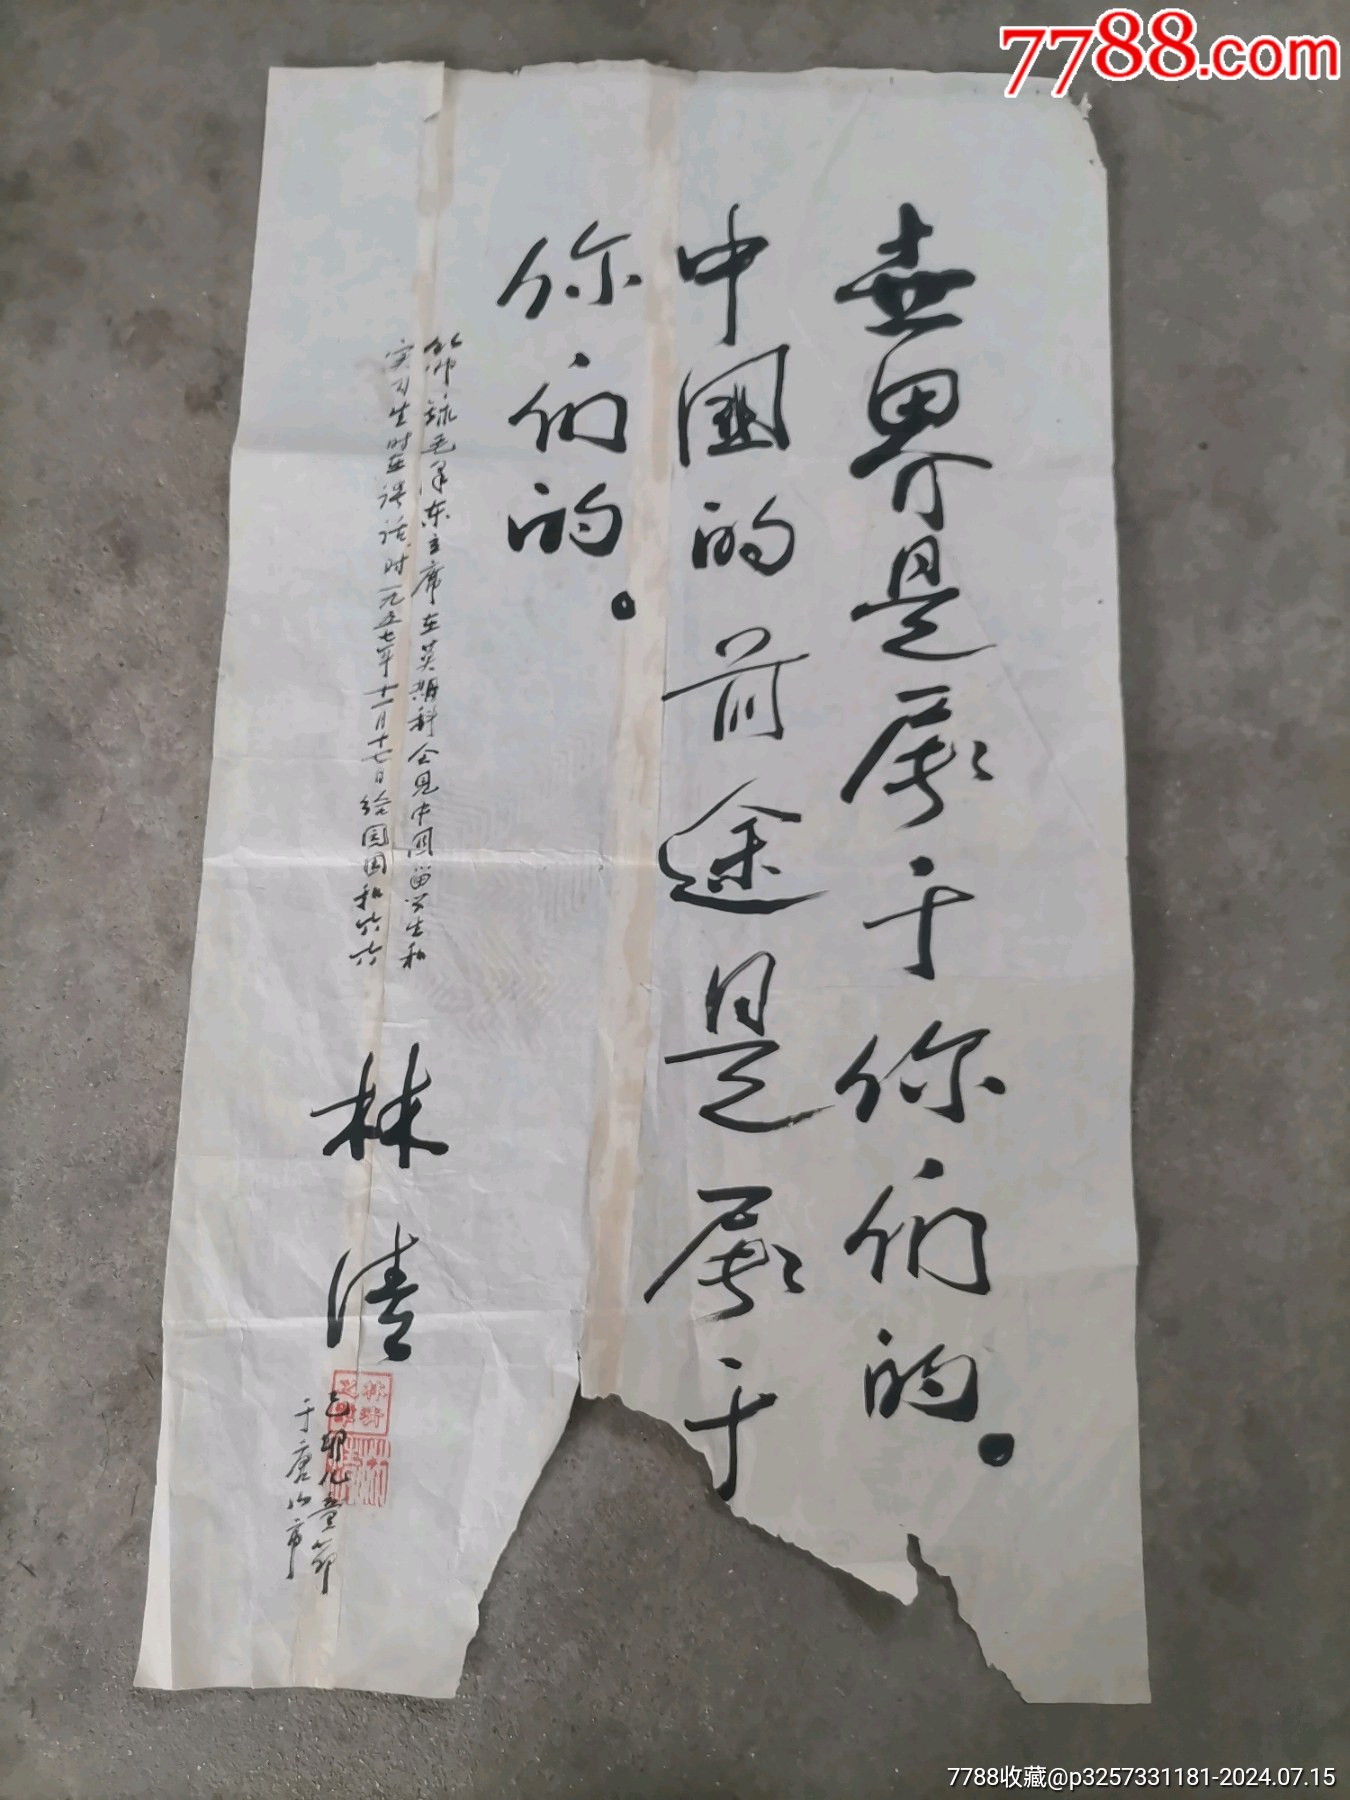 7788.com
世界是属于你们的。
中国的前途是属于
你们的。
节录毛泽东主席在莫斯科会见中国留学生和
实习生时在讲话时一九五七年十一月十七日给园园和六六
林清
己卯儿童节
于唐山市
7788收藏@p3257331181-2024.07.15